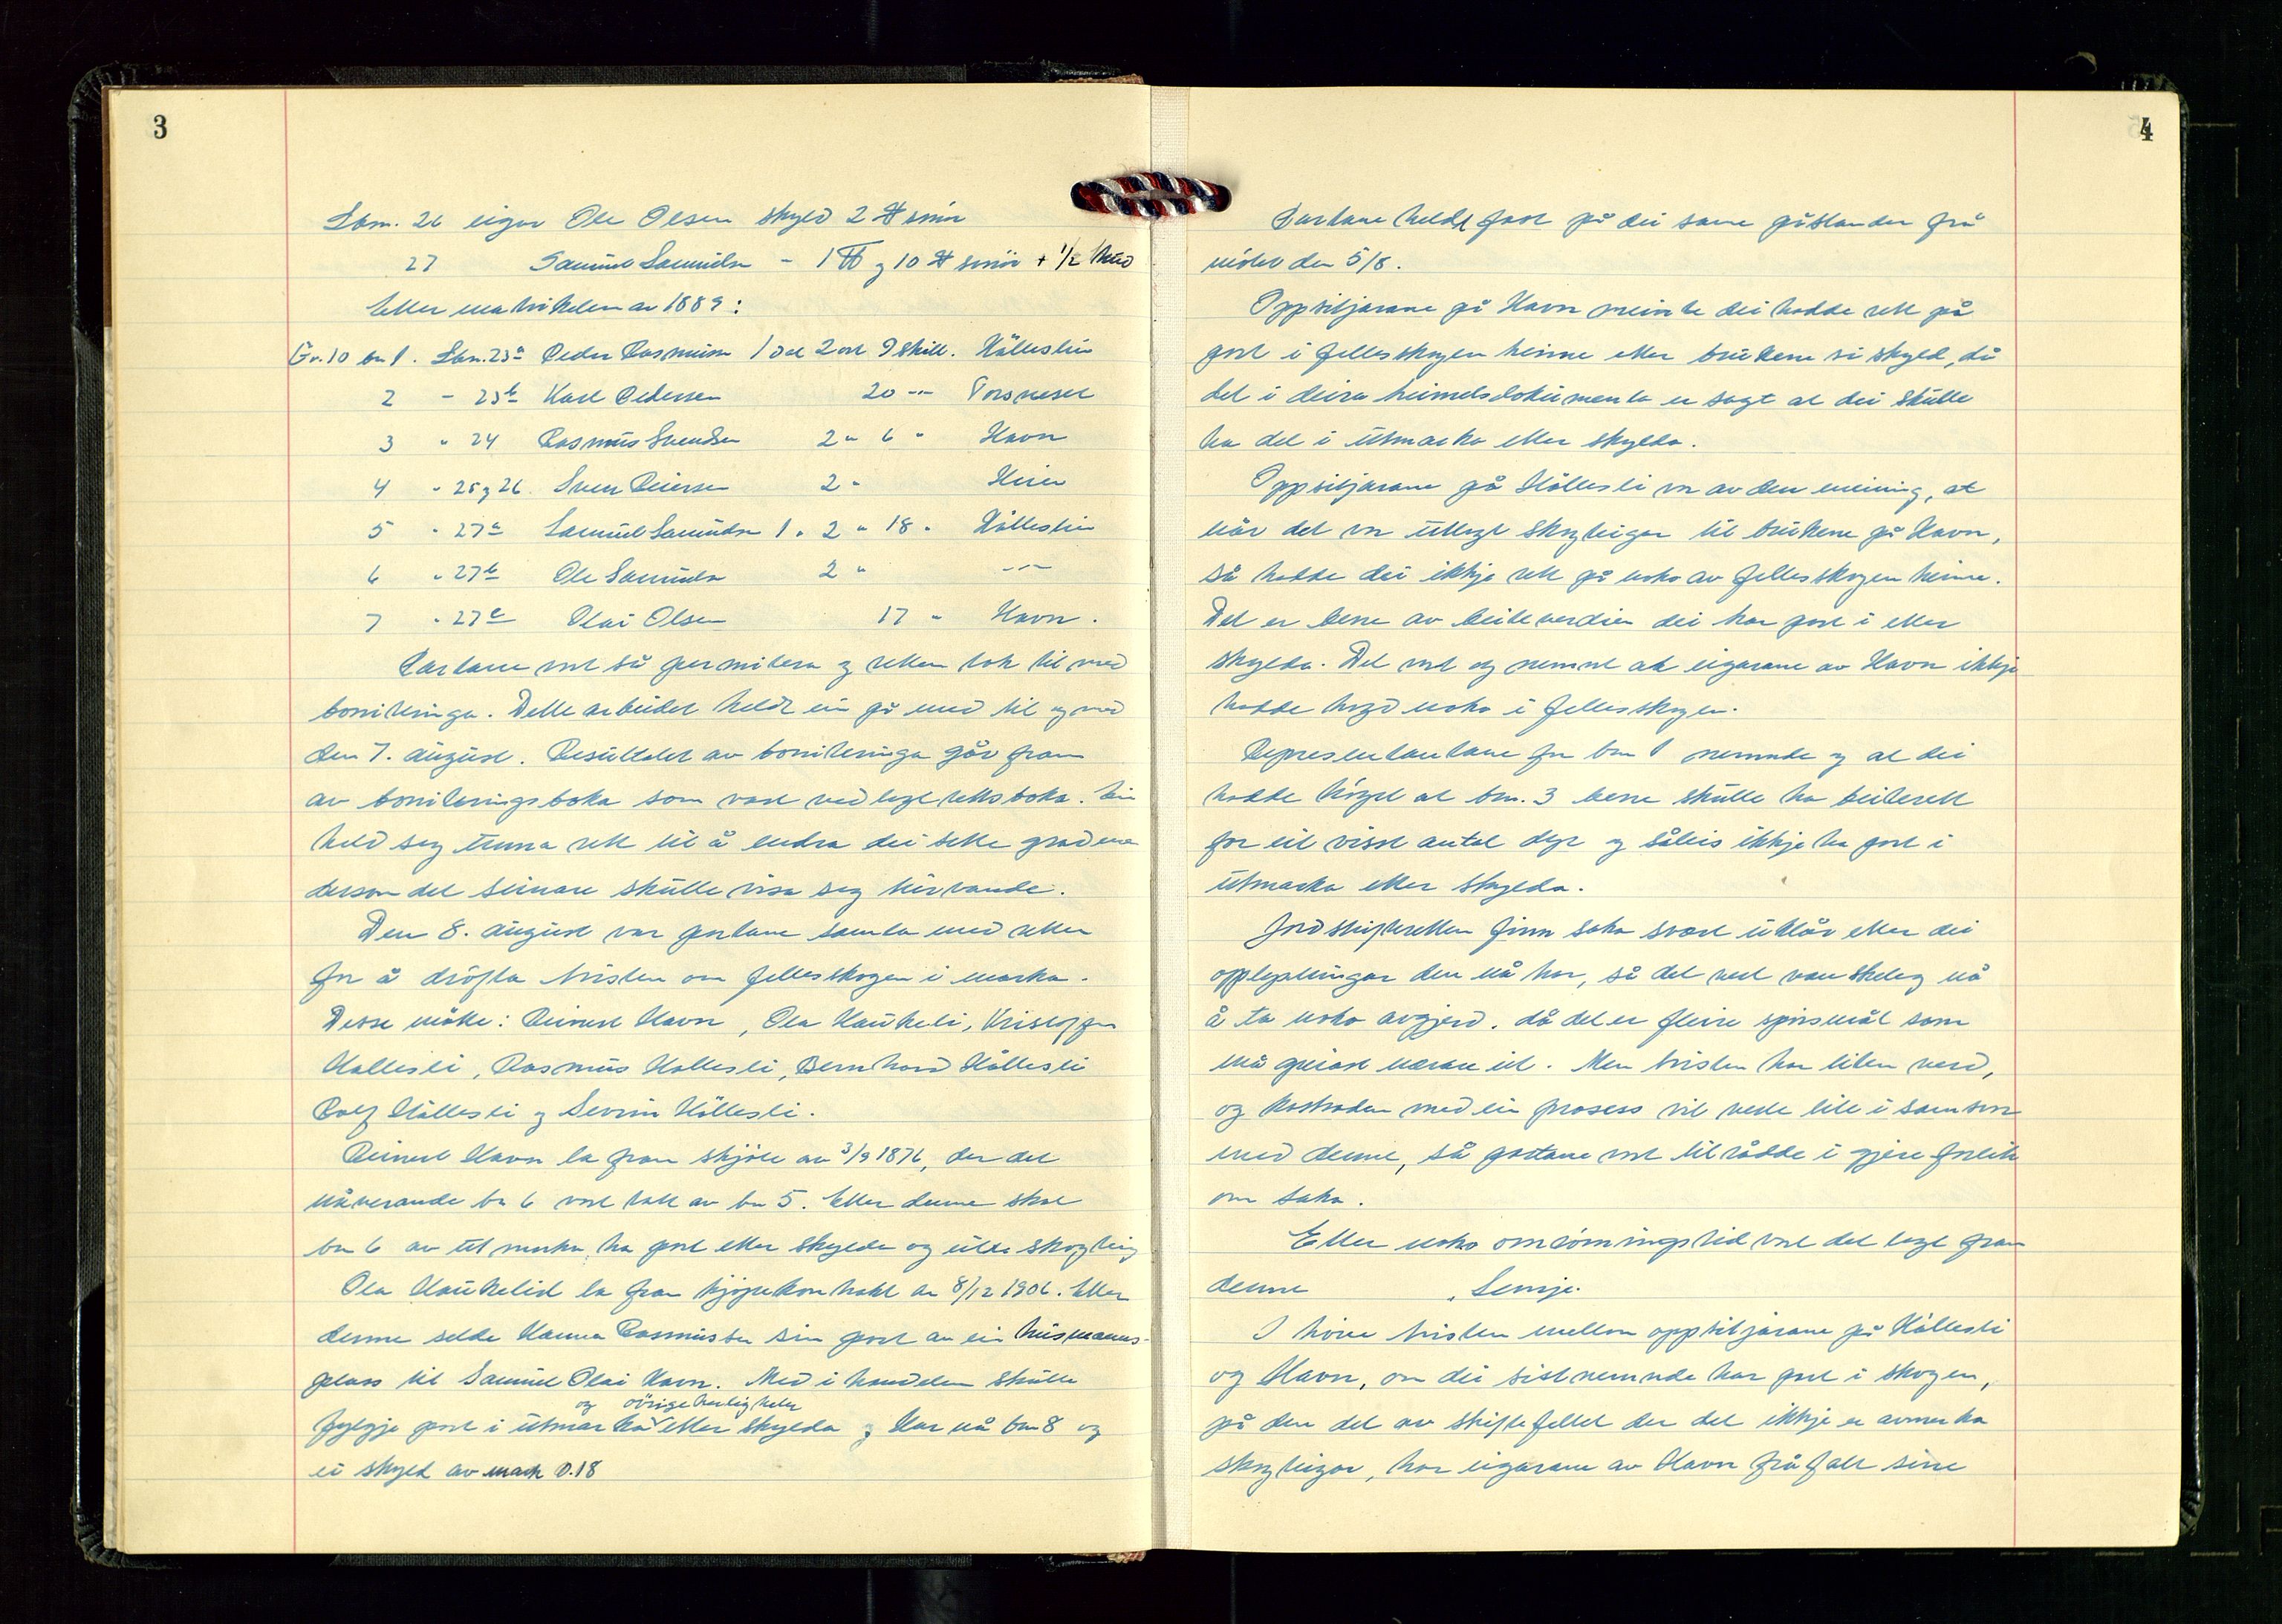 3
Lbm. 26 eigar Ole Olsen skyld 2 ℔ smör
27 Samuel Samuels. - 1 og 10 ℔ smör + 1/2 hud
Etter matrikelen av 1889:
Gr. 10 bn 1. Lbn. 23a Peder Rasmusen 1 dal 2 ort 9 skill. Hålleslien
2 - 23b Karl Pedersen 20 -"- Torsneset
3 " 24 Rasmus Svendsen 2 " 6 " Havn
4 " 25 og 26. Sven Reiersen 2 "
5 " 27a Samuel Samuels. 1 " 2 " 18 " Hålleslien
6 " 27b Ole Samuels. 2 " -"-
7 " 27c Olai Olsen 17 " Havn.
Partane vart så permitera og retten tok til med
boniteringa. Dette arbeidet heldt ein på med til og med
den 7. august. Resultatet av boniteringa går fram
av boniteringsboka som vart vedlagt rettsboka. Ein
held seg unna rett til å endra dei sette gradene
dersom det seinare skulle visa seg turvande.
Den 8. august var partane samla med retten
for å dröfta tvisten om fellesskogen i marka.
Desse møtte: Reinert Havn, Ola Haukeli, Kristoffer
Hallesli, Rasmus Hallesli, Bernhard Hållesli
Rolf Hållesli og Severin Hållesli.
Reinert Havn la fram skjöte av 3/9 1876, der det
nåverande bn 6 vart tatt av bn 5. Etter denne skal
bn 6 av utmarka ha part etter skylda og skogteig
Ola Haukelid la fram kjöpekontrakt av 8/12 1906. Etter
denne selde Hanna Rasmussen sin part av ein husmanns-
plass til Samuel Olai Havn. Med i handelen skulle
og övrige herligheter
fylgje part i utmarka etter skylda og har nå bn 8 og
ei skyld av mark 0.18
4
Partane heldt fast på dei same påstander frå
møtet den 5/8.
Oppsitjarane på Havn meinte dei hadde rett på
part i fellesskogen heime etter brukene si skyld, då
det i deira heimelsdokumenta er sagt at dei skulle
ha del i utmarka etter skylda.
Oppsitjarane på Hållesli var av den meining, at
når det var utlagt skogteigar til brukene på Havn,
så hadde dei ikkje rett på noko av fellesskogen heime.
Det er berre av beiteverdien dei har part i etter
skylda. Det vart og nemnt at eigarane av Havn ikkje
hadde hogd noko i fellesskogen.
Representantane for bn 1 nemnde og at dei
hadde höyrt at bn. 3 berre skulle ha beiterett
for eit visst antal dyr og såleis ikkje ha part i
utmarka etter skylda.
Jordskifteretten finn saka svært uklår etter dei
opplysningar den nå har, så det vert vanskeleg nå
å ta noko avgjerd, då det er fleire spörsmål som
må greiast nærare ut. Men tvisten har liten verd,
og kostnaden med ein prosess vil verte lite i samsvar
med denne, så partane vart tilrådde å gjere forlik
om saka.
Etter noko omröningstid vart det lagt fram
denne Semje.
I höve tvisten mellom oppsitjarane på Hållesli
og Havn, om dei sistnemnde har part i skogen,
på den del av skiftefeltet der det ikkje er avmerka
skogteigar, har eigarane av Havn fråfalt sine